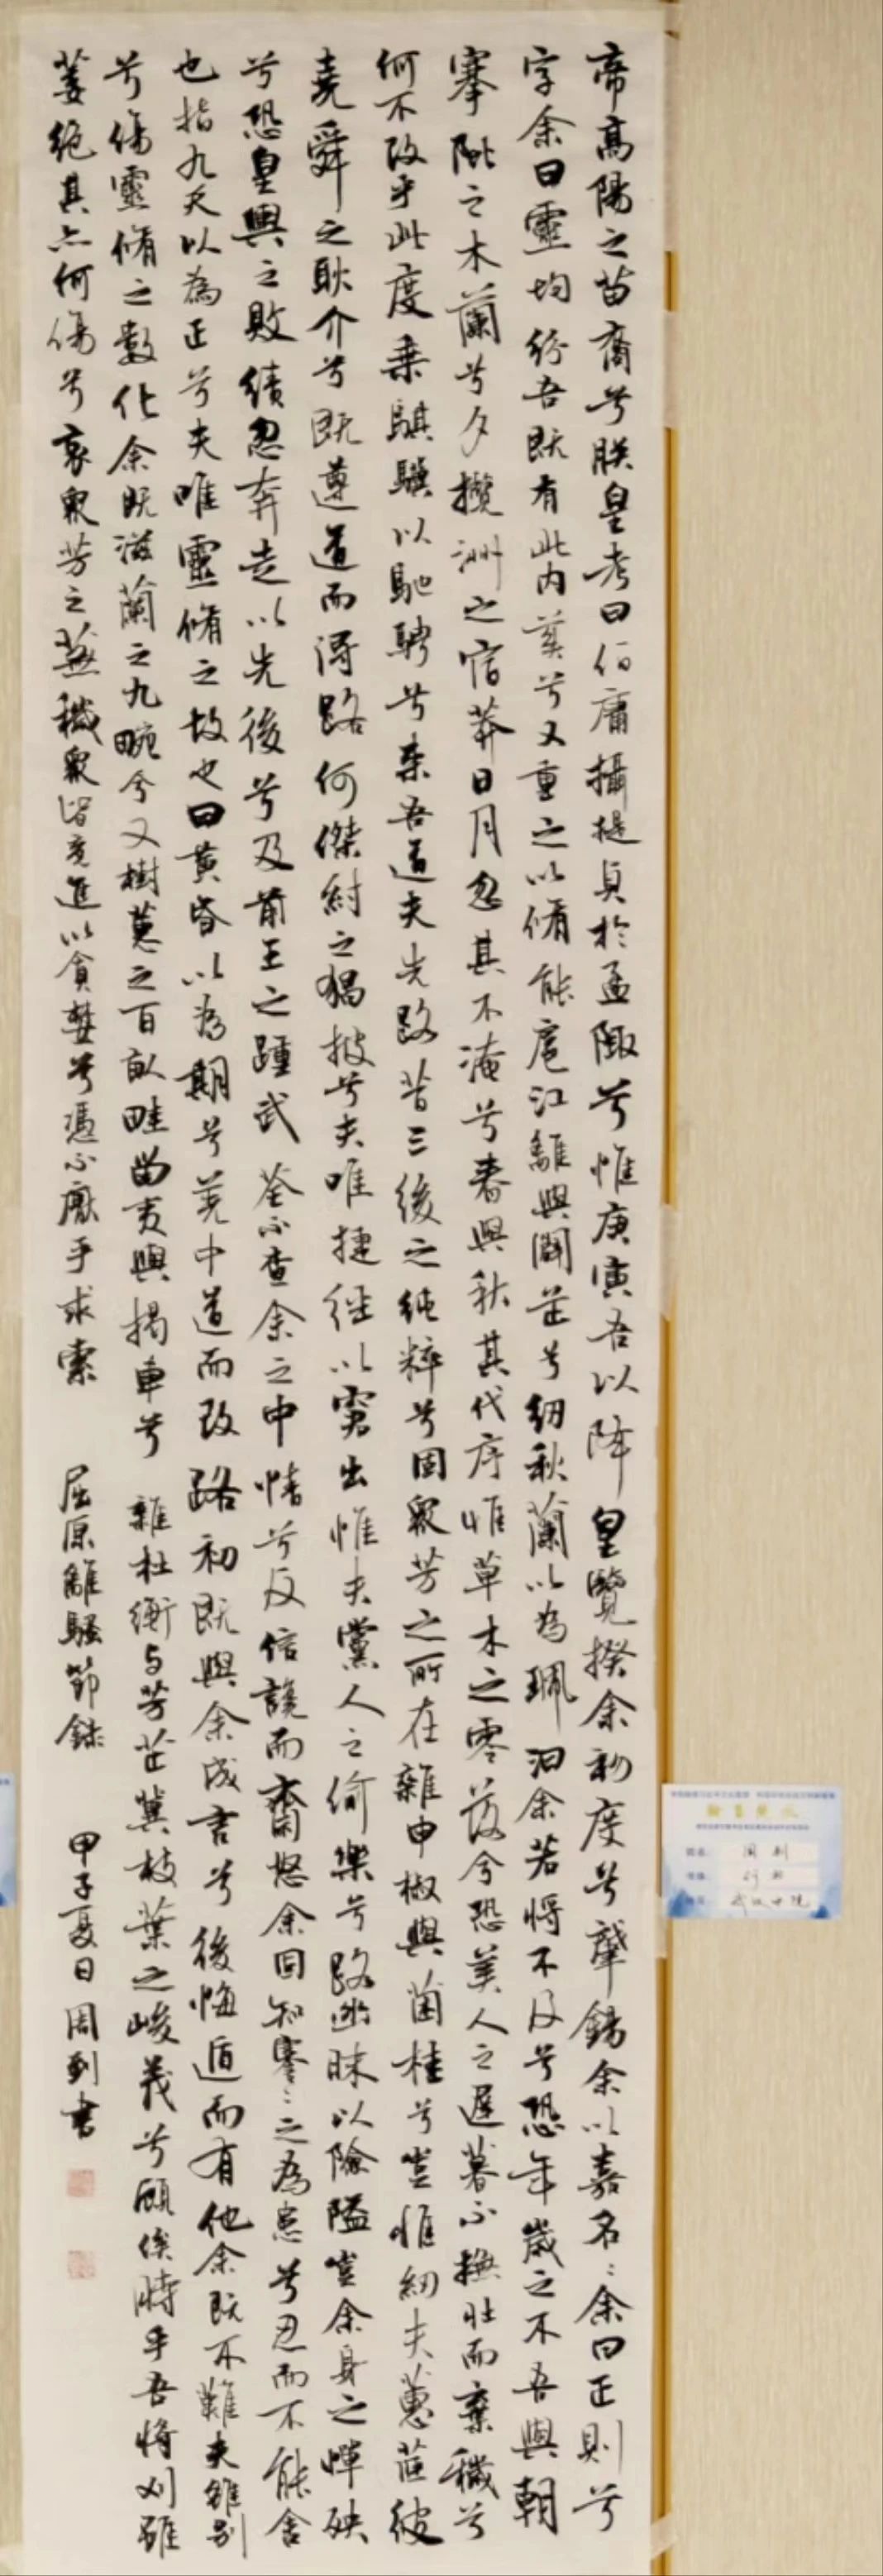 帝高陽之苗裔兮朕皇考曰伯庸攝提貞於孟陬兮惟庚寅吾以降皇覽揆余初度兮肈錫余以嘉名〻余曰正則兮
字余曰靈均紛吾既有此內美兮又重之以脩能扈江離與闢芷兮紉秋蘭以為珮汩余若將不及兮恐年歲之不吾與朝
搴阰之木蘭兮夕攬洲之宿莽日月忽其不淹兮春與秋其代序惟草木之零落兮恐美人之遲暮不撫壯而棄穢兮
何不改乎此度乘騏驥以馳騁兮来吾道夫先路昔三後之純粹兮固衆芳之所在雜申椒與菌桂兮豈惟紉夫蕙茝彼
堯舜之耿介兮既遵道而得路何傑紂之猖披兮夫唯捷徑以窘出惟夫黨人之偷樂兮路幽昧以險隘豈余身之憚殃
兮恐皇輿之敗績忽奔走以先後兮及前王之踵武荃不查余之中情兮反信讒而齋怒余固知謇〻之為患兮忍而不能舍
也指九天以為正兮夫唯靈脩之故也曰黄昏以為期兮羌中道而改路初既與余成言兮後悔遁而有他余既不難夫離别
兮傷靈脩之數化余既滋蘭之九畹兮又樹蕙之百畝畦留夷與揭車兮雜杜衡与芳芷冀枝葉之峻茂兮願俟時乎吾將刈雖
萎絕其亦何傷兮哀衆芳之蕪穢衆皆竞進以貪婪兮憑不厭乎求索 屈原離騷節錄 甲子夏日周到書